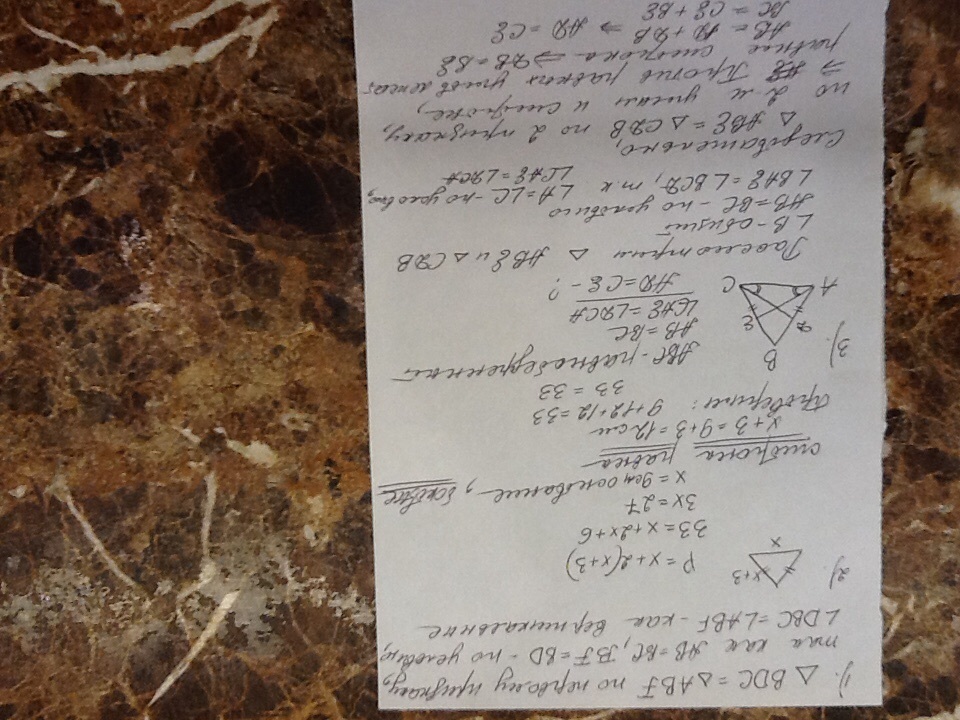 1). △ BDC = △ ABF по первому признаку,
так как AB=BC, BF=BD - по условию,
∠DBC = ∠ABF - как вертикальные
2).
x+3
x
P = x+2(x+3)
33 = x+2x+6
3x = 27
x = 9см основание, боковые
сторона равна
x+3 = 9+3 = 12 см
Проверим: 9+12+12 = 33
33 = 33
3).
B
D
E
A
C
ABC - равнобедренный
AB = BC
∠CAE = ∠DCA
AD = CE - ?
Рассмотрим △ ABE и △ CDB
∠B - общий
AB = BC - по условию
∠BAE = ∠BCD, т.к. ∠A = ∠C - по условию,
∠CAE = ∠DCA
Следовательно,
△ ABE = △ CDB по 2 признаку,
по 2-м углам и стороне,
⇒ Против равных углов лежат
равные стороны ⇒ DB = BE
AB = AD + DB ⇒ AD = CE
BC = CE + BE